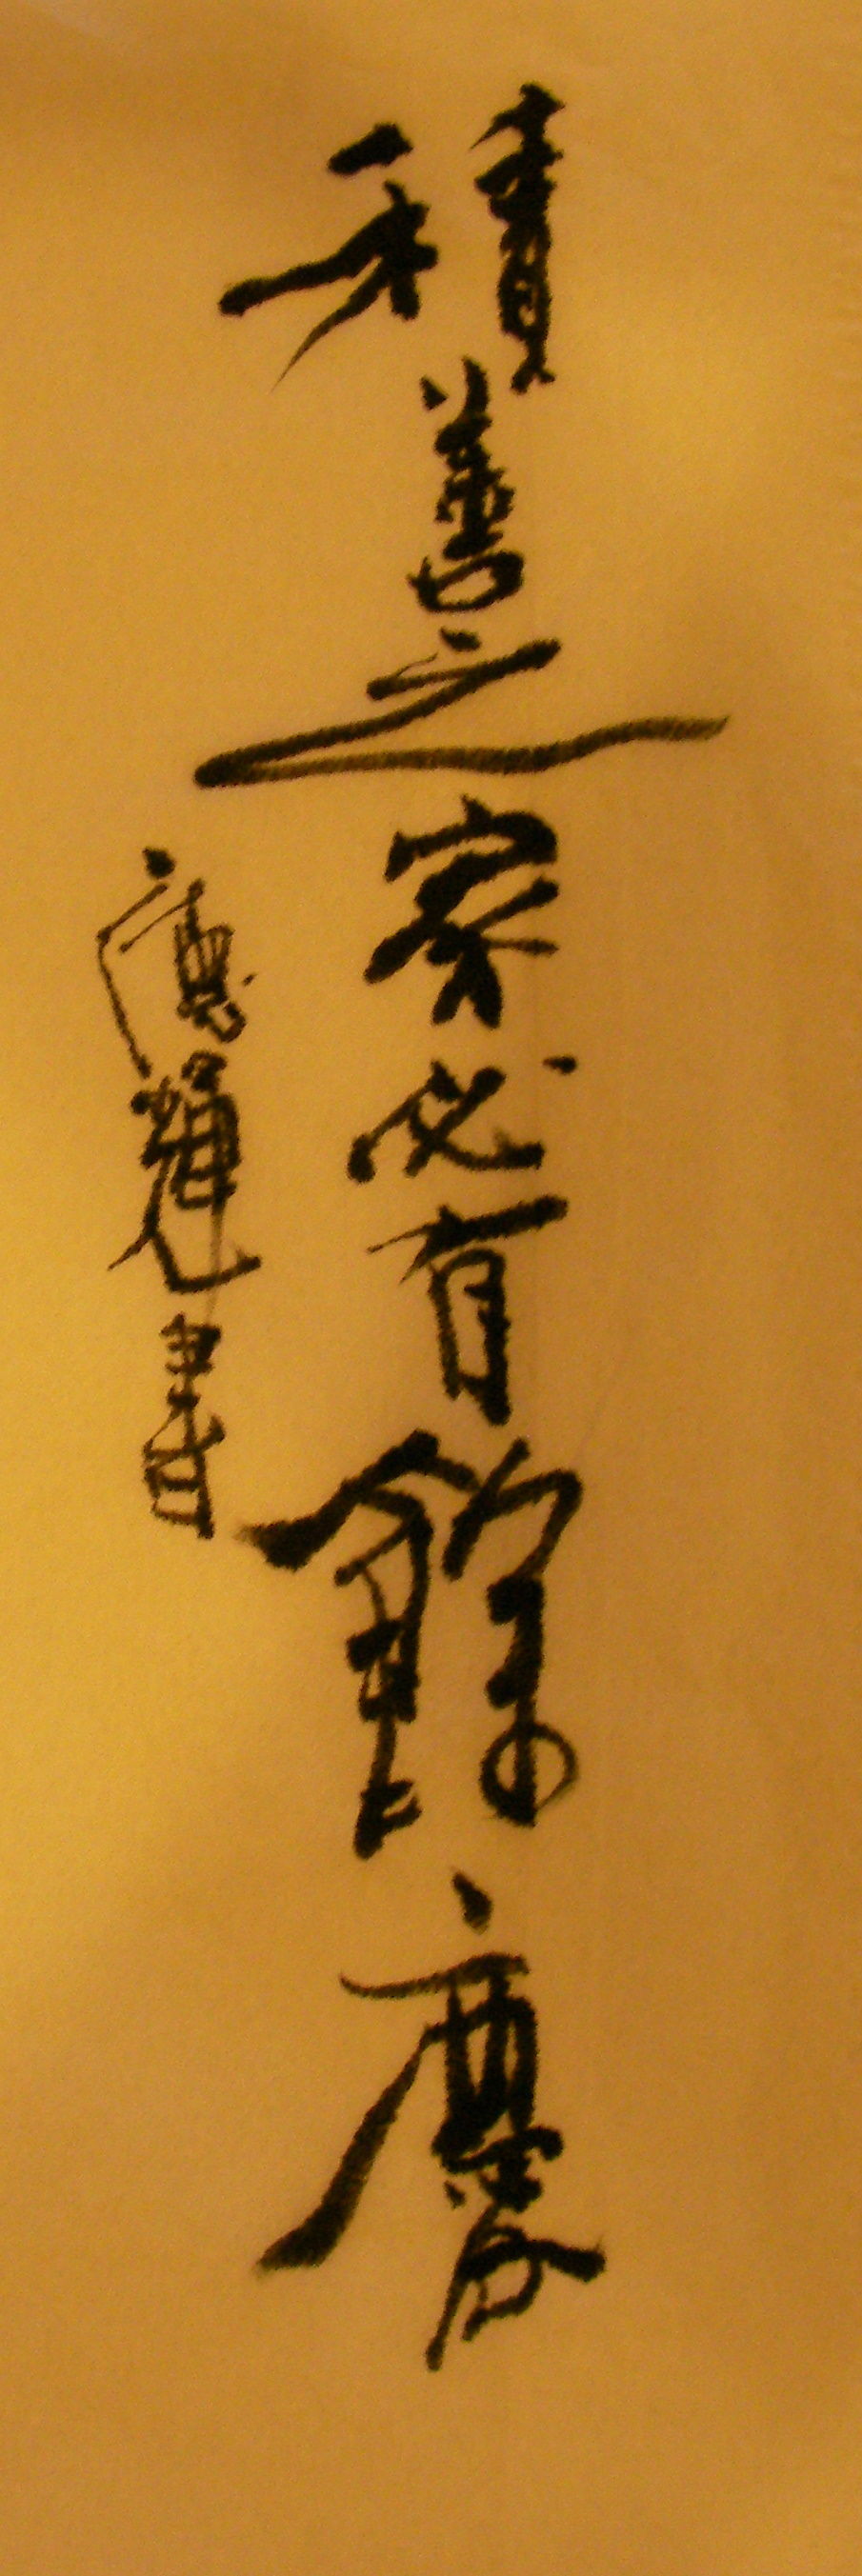 積善之家必有餘慶
德輝書